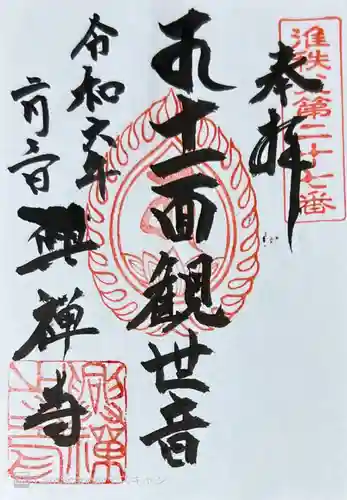 准秩父第二十七番
奉拝
十一面観世音
令和六年
二月二日
興禅寺